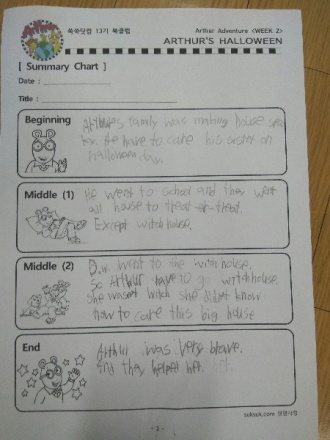 쑥쑥닷컴 13기 북클럽
Arthur Adventure <WEEK 2>
ARTHUR'S HALLOWEEN
[ Summary Chart ]
Date :
Title :
Beginning
Arthur's family was making house
He have to care his sister on
halloween day.
Middle (1)
He went to school and they went
all house to treat or treat.
Except witch house.
Middle (2)
D.W. went to the witch house.
So Arthur have to go witch house.
She wasn't witch she didn't know
how to care this big house
End
Arthur was very brave.
And they helped her.
- 2 -
suksuk.com